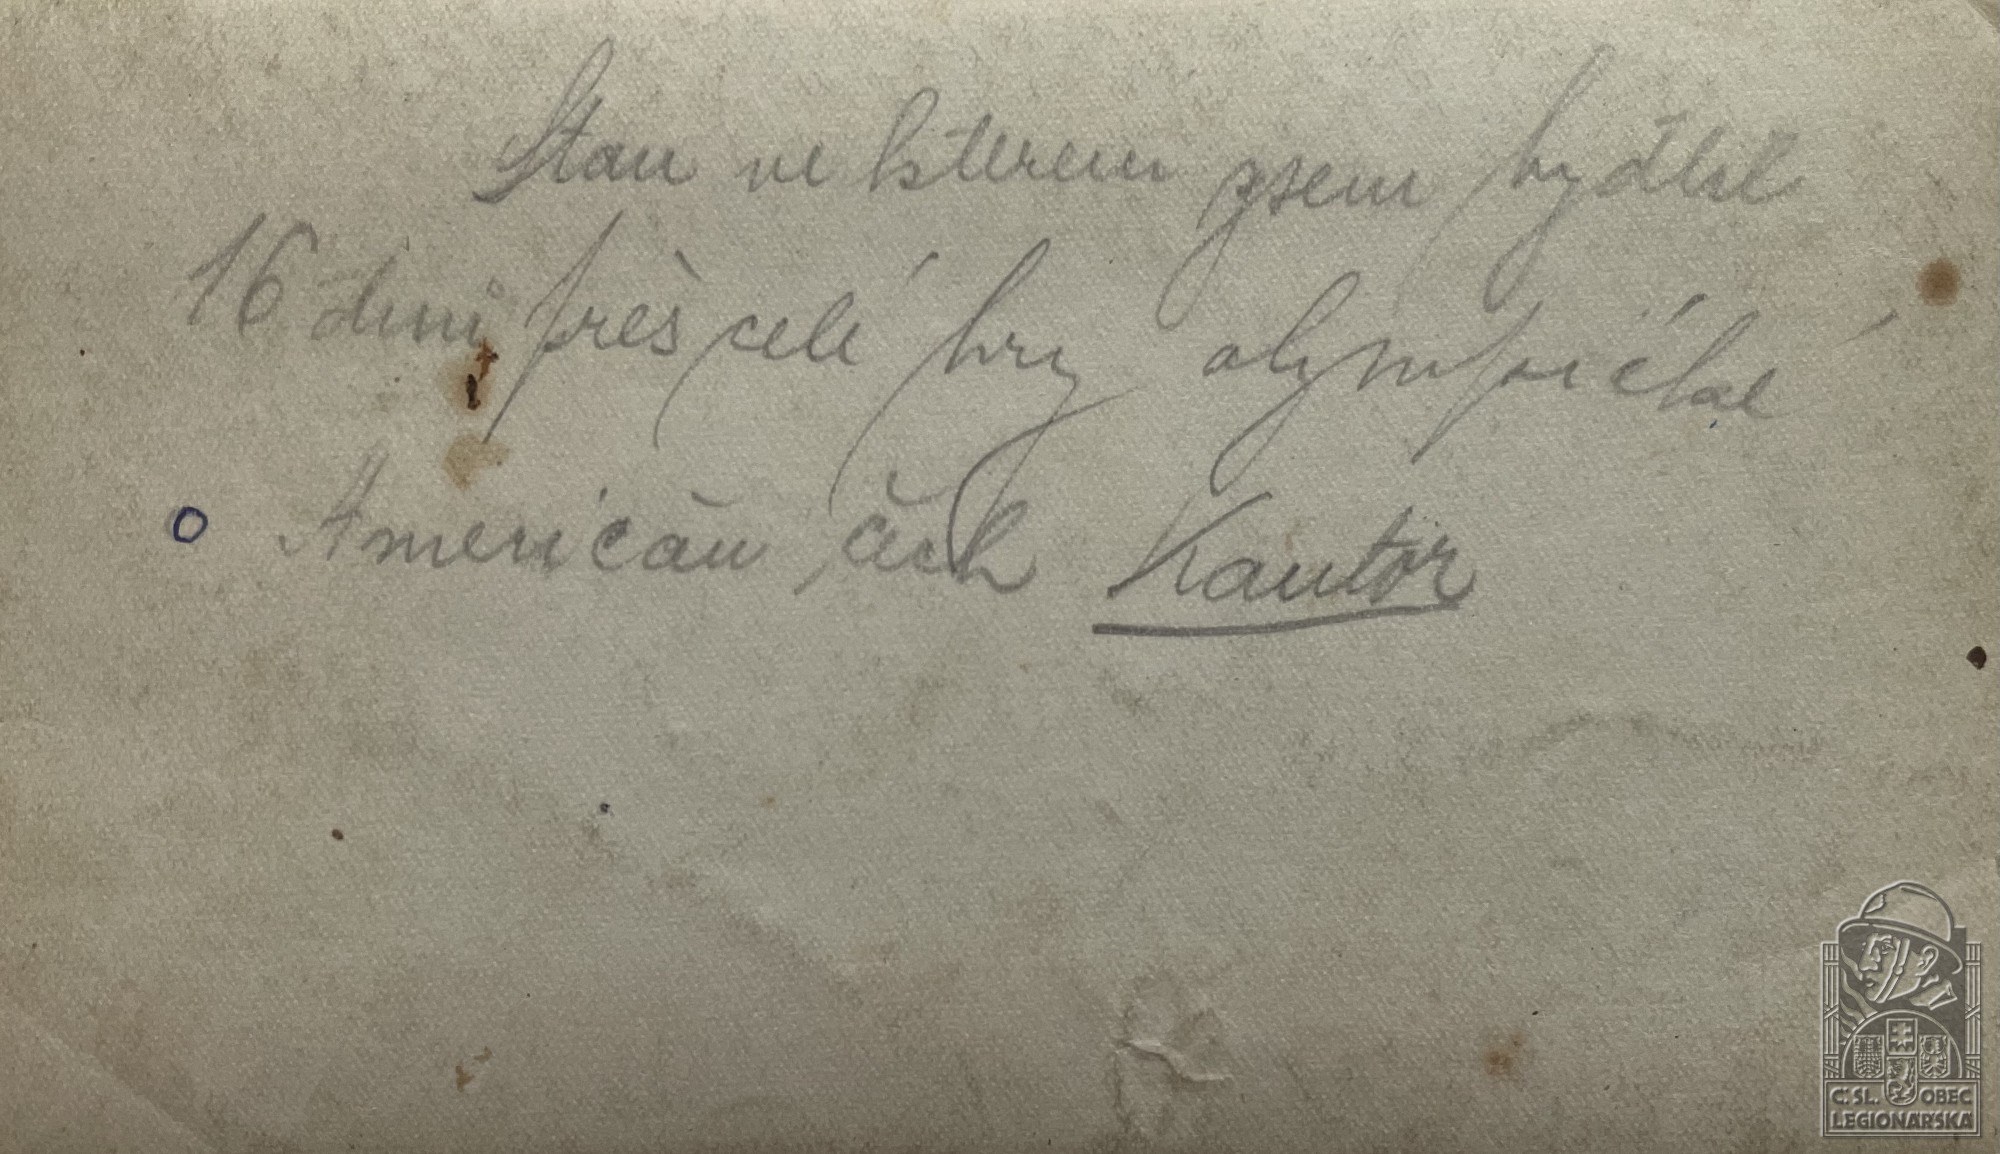 Stan ve kterem jsem bydlel
16 dnni přěs celé hry olympické
Američan čech Kantor
Č. SL. OBEC
LEGIONÁŘSKÁ